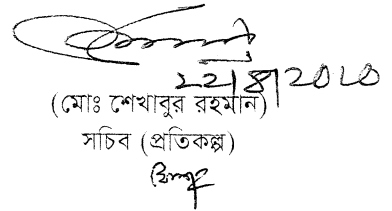 ২২|৪|২০১০
(মোঃ শেখাবুর রহমান)
সচিব (প্রতিকল্প)